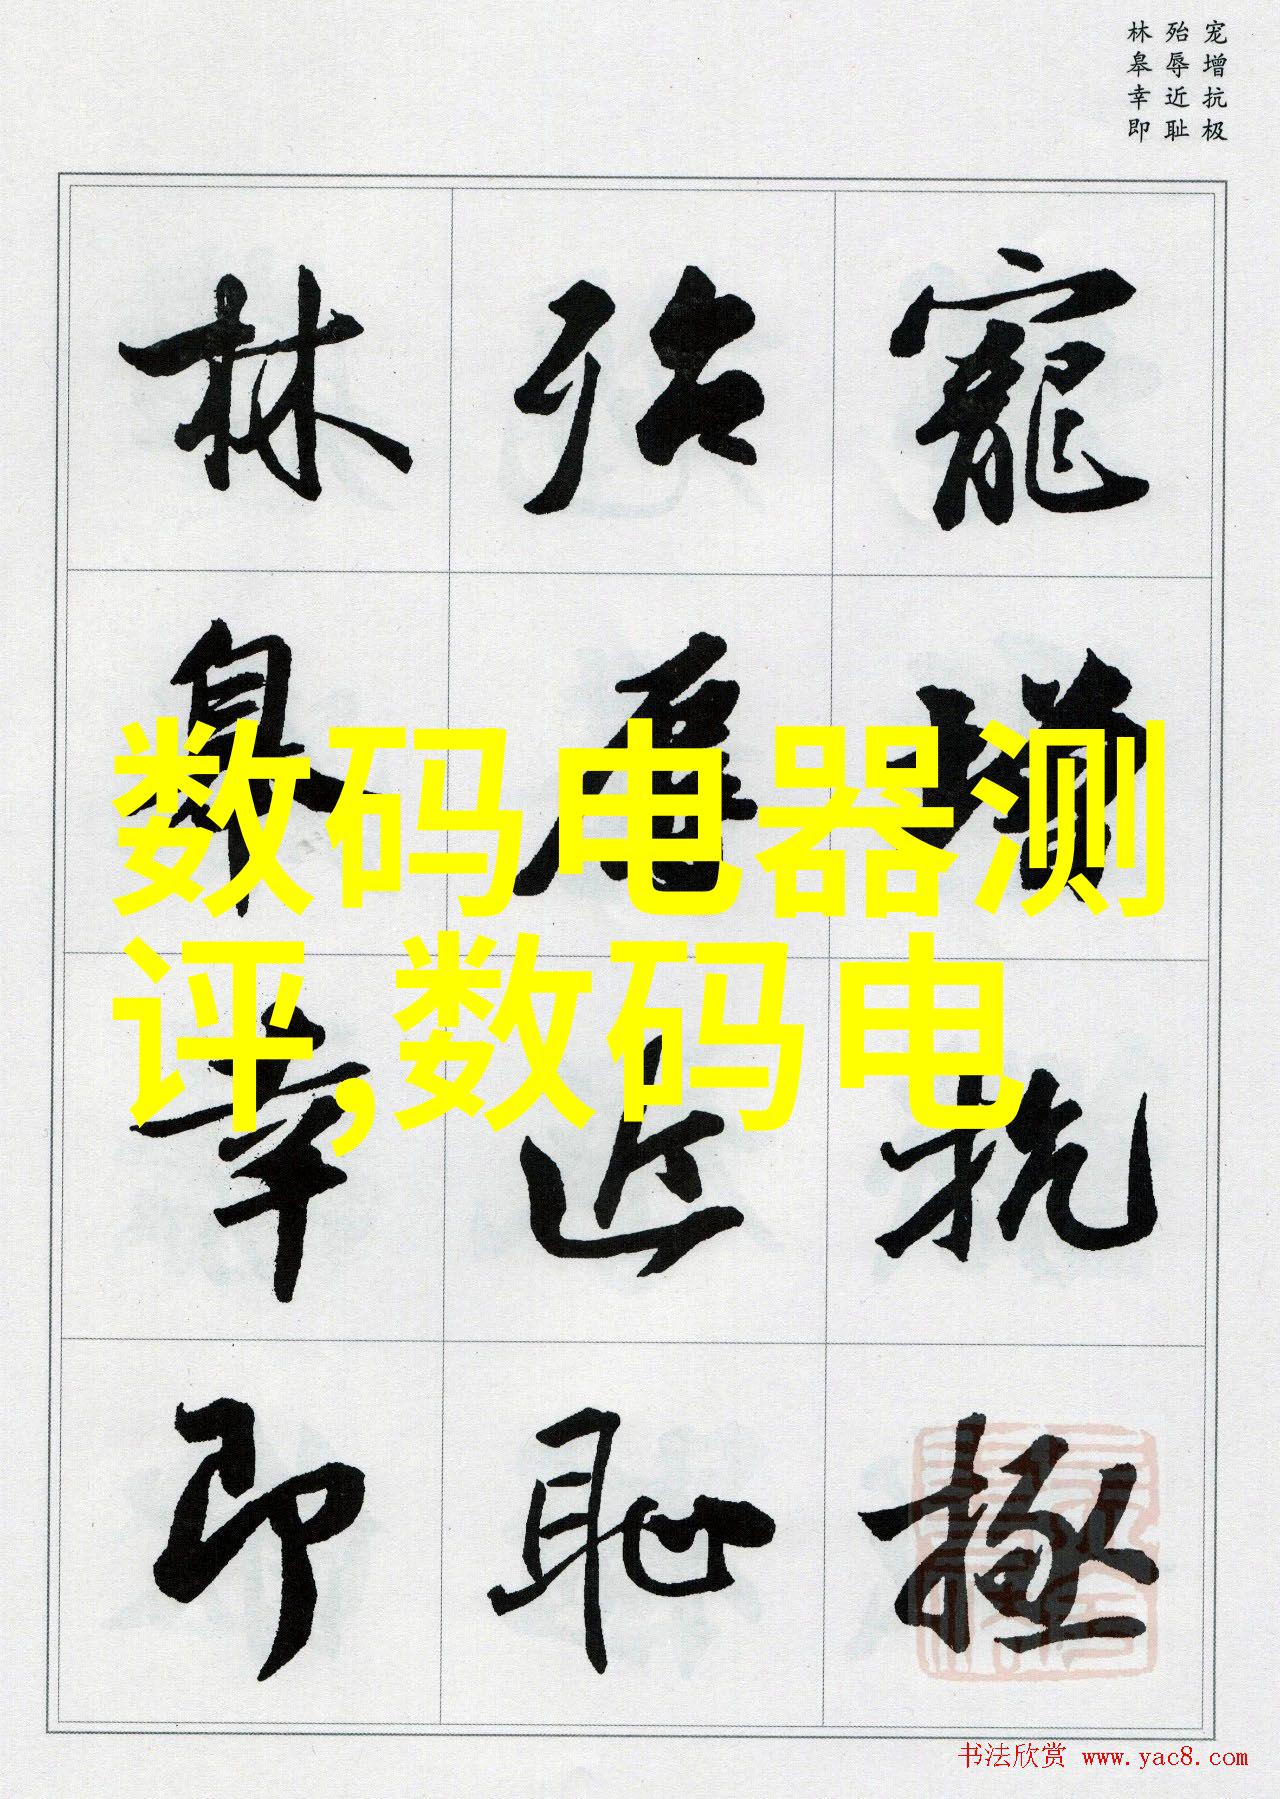 宠增抗极
殆辱近耻
林皋幸即
寵增抗極
殆辱近恥
林皋幸即
数码电器测
评,数码电
书法欣赏 www.yac8.com